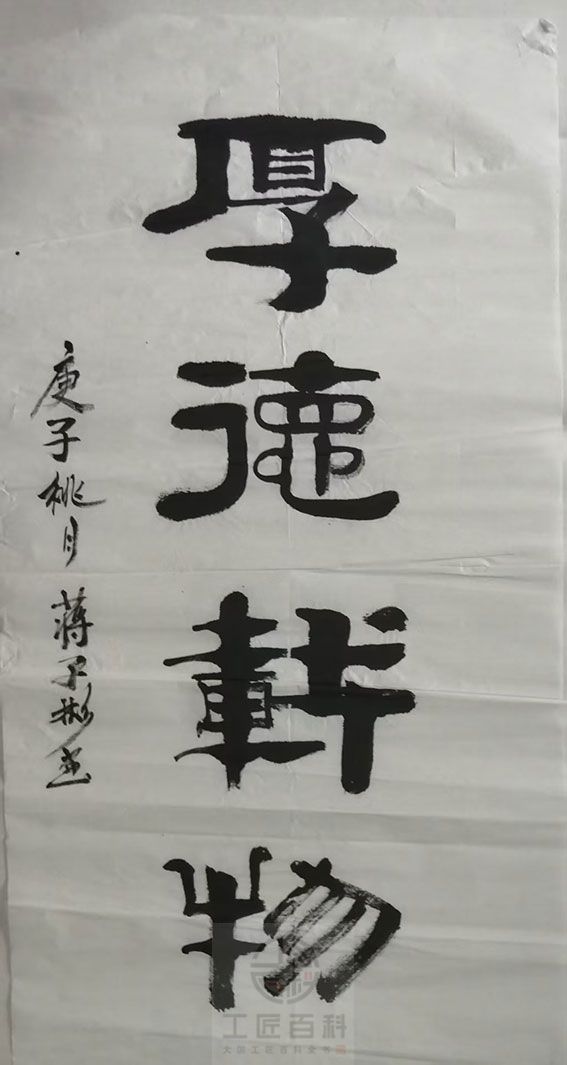 厚德載物
庚子桃月 蒋子彬書
工匠百科
大国工匠百科全书